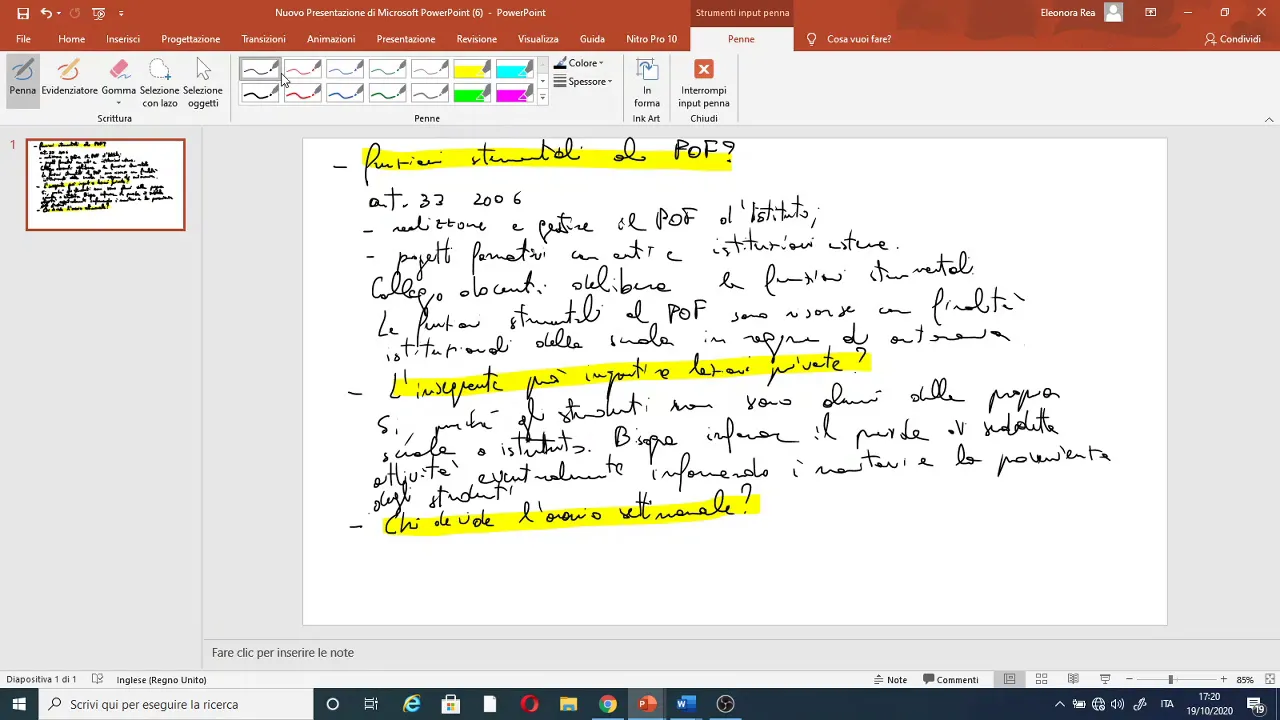 Nuovo Presentazione di Microsoft PowerPoint (6) - PowerPoint
Strumenti input penna
Eleonora Rea
File Home Inserisci Progettazione Transizioni Animazioni Presentazione Revisione Visualizza Guida Nitro Pro 10 Penne Cosa vuoi fare? Condividi
Penna Evidenziatore Gomma Selezione con lazo Selezione oggetti
Colore
Spessore
In forma
Interrompi input penna
Scrittura Penne Ink Art Chiudi
1
- funzioni strumentali al POF?
art. 33 2006
- realizzare e gestire il POF d'Istituto;
- progetti formativi con enti e istituzioni esterne.
Collegio docenti delibera le funzioni strumentali
Le funzioni strumentali al POF sono risorse con finalità
istituzionali della scuola in regime di autonomia
- L'insegnante può impartire lezioni private?
Si, purché gli studenti non sono alunni della propria
scuola o istituto. Bisogna informare il preside di suddetta
attività eventualmente informando i nominativi e la provenienza
degli studenti
- Chi decide l'orario settimanale?
Fare clic per inserire le note
Diapositiva 1 di 1 Inglese (Regno Unito) Note Commenti 85%
Scrivi qui per eseguire la ricerca
ITA
17:20
19/10/2020
19